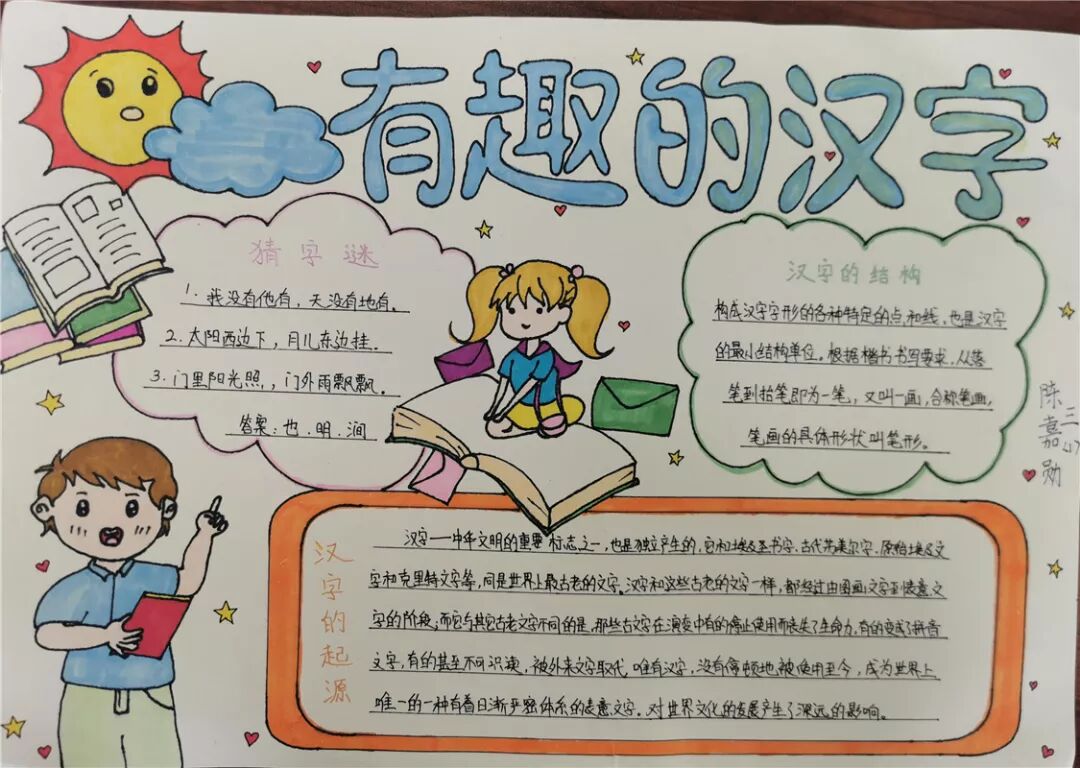 有趣的汉字
猜字谜
1. 我没有他有，天没有地有。
2. 太阳西边下，月儿东边挂.
3. 门里阳光照，，门外雨飘飘。
答案：也．明．涧
汉字的结构
构成汉字字形的各种特定的点和线，也是汉字
的最小结构单位。根据楷书书写要求，从落
笔到抬笔即为一笔，又叫一画，合称笔画，
笔画的具体形状叫笔形。
陈嘉勋
三
汉字的起源
汉字——中华文明的重要标志之一，也是独立产生的，它和埃及圣书字、古代苏美尔字、原始埃及文
字和克里特文字等，同是世界上最古老的文字。汉字和这些古老的文字一样，都经过由图画文字到表意文
字的阶段；而它与其它古老文字不同的是，那些古文字在演变中有的停止使用而丧失了生命力，有的变成了拼音
文字，有的甚至不可识读，被外来文字取代．唯有汉字，没有停顿地被使用至今，成为世界上
唯一的一种有着日渐严密体系的表意文字。对世界文化的发展产生了深远的影响。